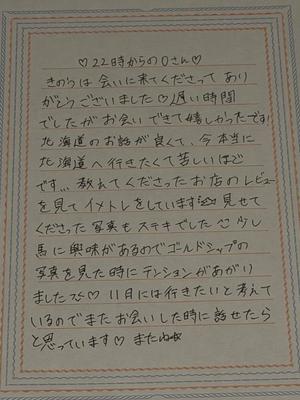 ♡22時からのOさん♡
きのうは会いに来てくださってあり
がとうございました♡遅い時間
でしたがお会いできて嬉しかったです!
北海道のお話が良くて、今本当に
北海道へ行きたくて苦しいほど
です… 教えてくださったお店のレビュー
を見てイメトレをしています 見せて
くださった写真もステキでした 少し
馬に興味があるのでゴールドシップの
写真を見た時にテンションがあがり
ました ♡ 11月には行きたいと考えて
いるのでまたお会いした時に話せたら
と思っています♡ またね